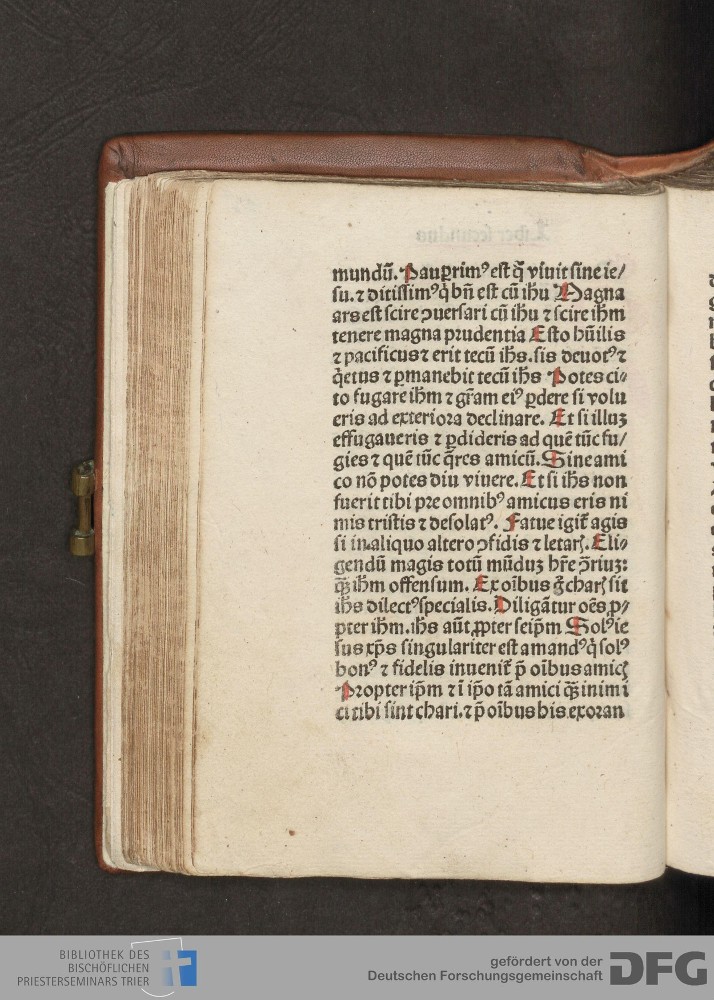 mundū. Paup̲rimꝰ est q̄ viuit sine ie/
su. ⁊ ditissimꝰ q̇ bn̄ est cū ihu Magna
ars est scire ꝯuersari cū ihu ⁊ scire ihm
tenere magna prudentia Esto hūilis
⁊ pacificus ⁊ erit tecū ihs. sis deuotꝰ ⁊
q̇etus ⁊ ꝑmanebit tecū ihs Potes ci⸗
to fugare ihm ⁊ gr̄am eiꝰ ꝑdere si volu
eris ad exteriora declinare. Et si illuꝫ
effugaueris ⁊ ꝑdideris ad quē tūc fu/
gies ⁊ quē tūc q̄res amicū. Sine ami
co nō potes diu viuere. Et si ihs non
fuerit tibi pre omnibꝰ amicus eris ni
mis tristis ⁊ desolatꝰ. Fatue igit̄ agis
si in aliquo altero ꝯfidis ⁊ letarꝭ. Eli⸗
gendū magis totū mūduꝫ hr̄e ꝯ̄riuꝫ:
qꝫ̄ ihm offensum. Ex oībus g̊ charꝭ sit
ihs dilectꝰ specialis. Diligātur oēs ꝓ⸗
pter ihm. ihs aūt ꝓpter seip̄m Solꝰ ie
sus xp̄s singulariter est amandꝰ q̇ solꝰ
bonꝰ ⁊ fidelis inuenit̄ p̄ oībus amicꝭ
Propter ip̄m ⁊ ī ip̄o tā amici qꝫ̄ inimi
ci tibi sint chari. ⁊ p̄ oībus his exoran
BIBLIOTHEK DES
BISCHÖFLICHEN
PRIESTERSEMINARS TRIER
gefördert von der
Deutschen Forschungsgemeinschaft
DFG